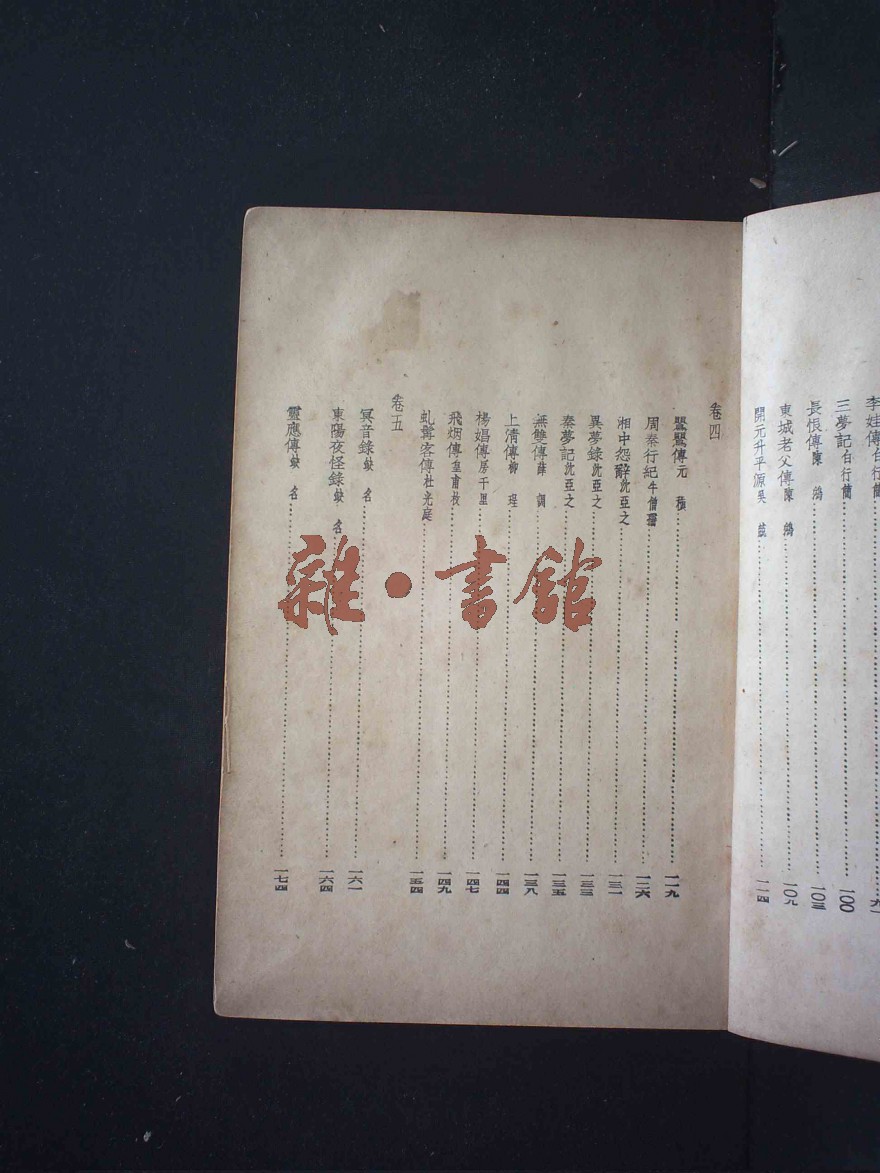 李娃傳 白行簡 九一
三夢記 白行簡 一〇〇
長恨傳 陳鴻 一〇三
東城老父傳 陳鴻 一〇九
開元升平源 吳兢 一一四
卷四
鶯鶯傳 元稹 一一九
周秦行紀 牛僧孺 一二六
湘中怨辭 沈亞之 一三一
異夢錄 沈亞之 一三三
秦夢記 沈亞之 一三五
無雙傳 薛調 一三八
上清傳 柳珵 一四四
楊娼傳 房千里 一四七
飛烟傳 皇甫枚 一四九
虬髯客傳 杜光庭 一五四
卷五
冥音錄 缺名 一六一
東陽夜怪錄 缺名 一六四
靈應傳 缺名 一七四
雜·書館